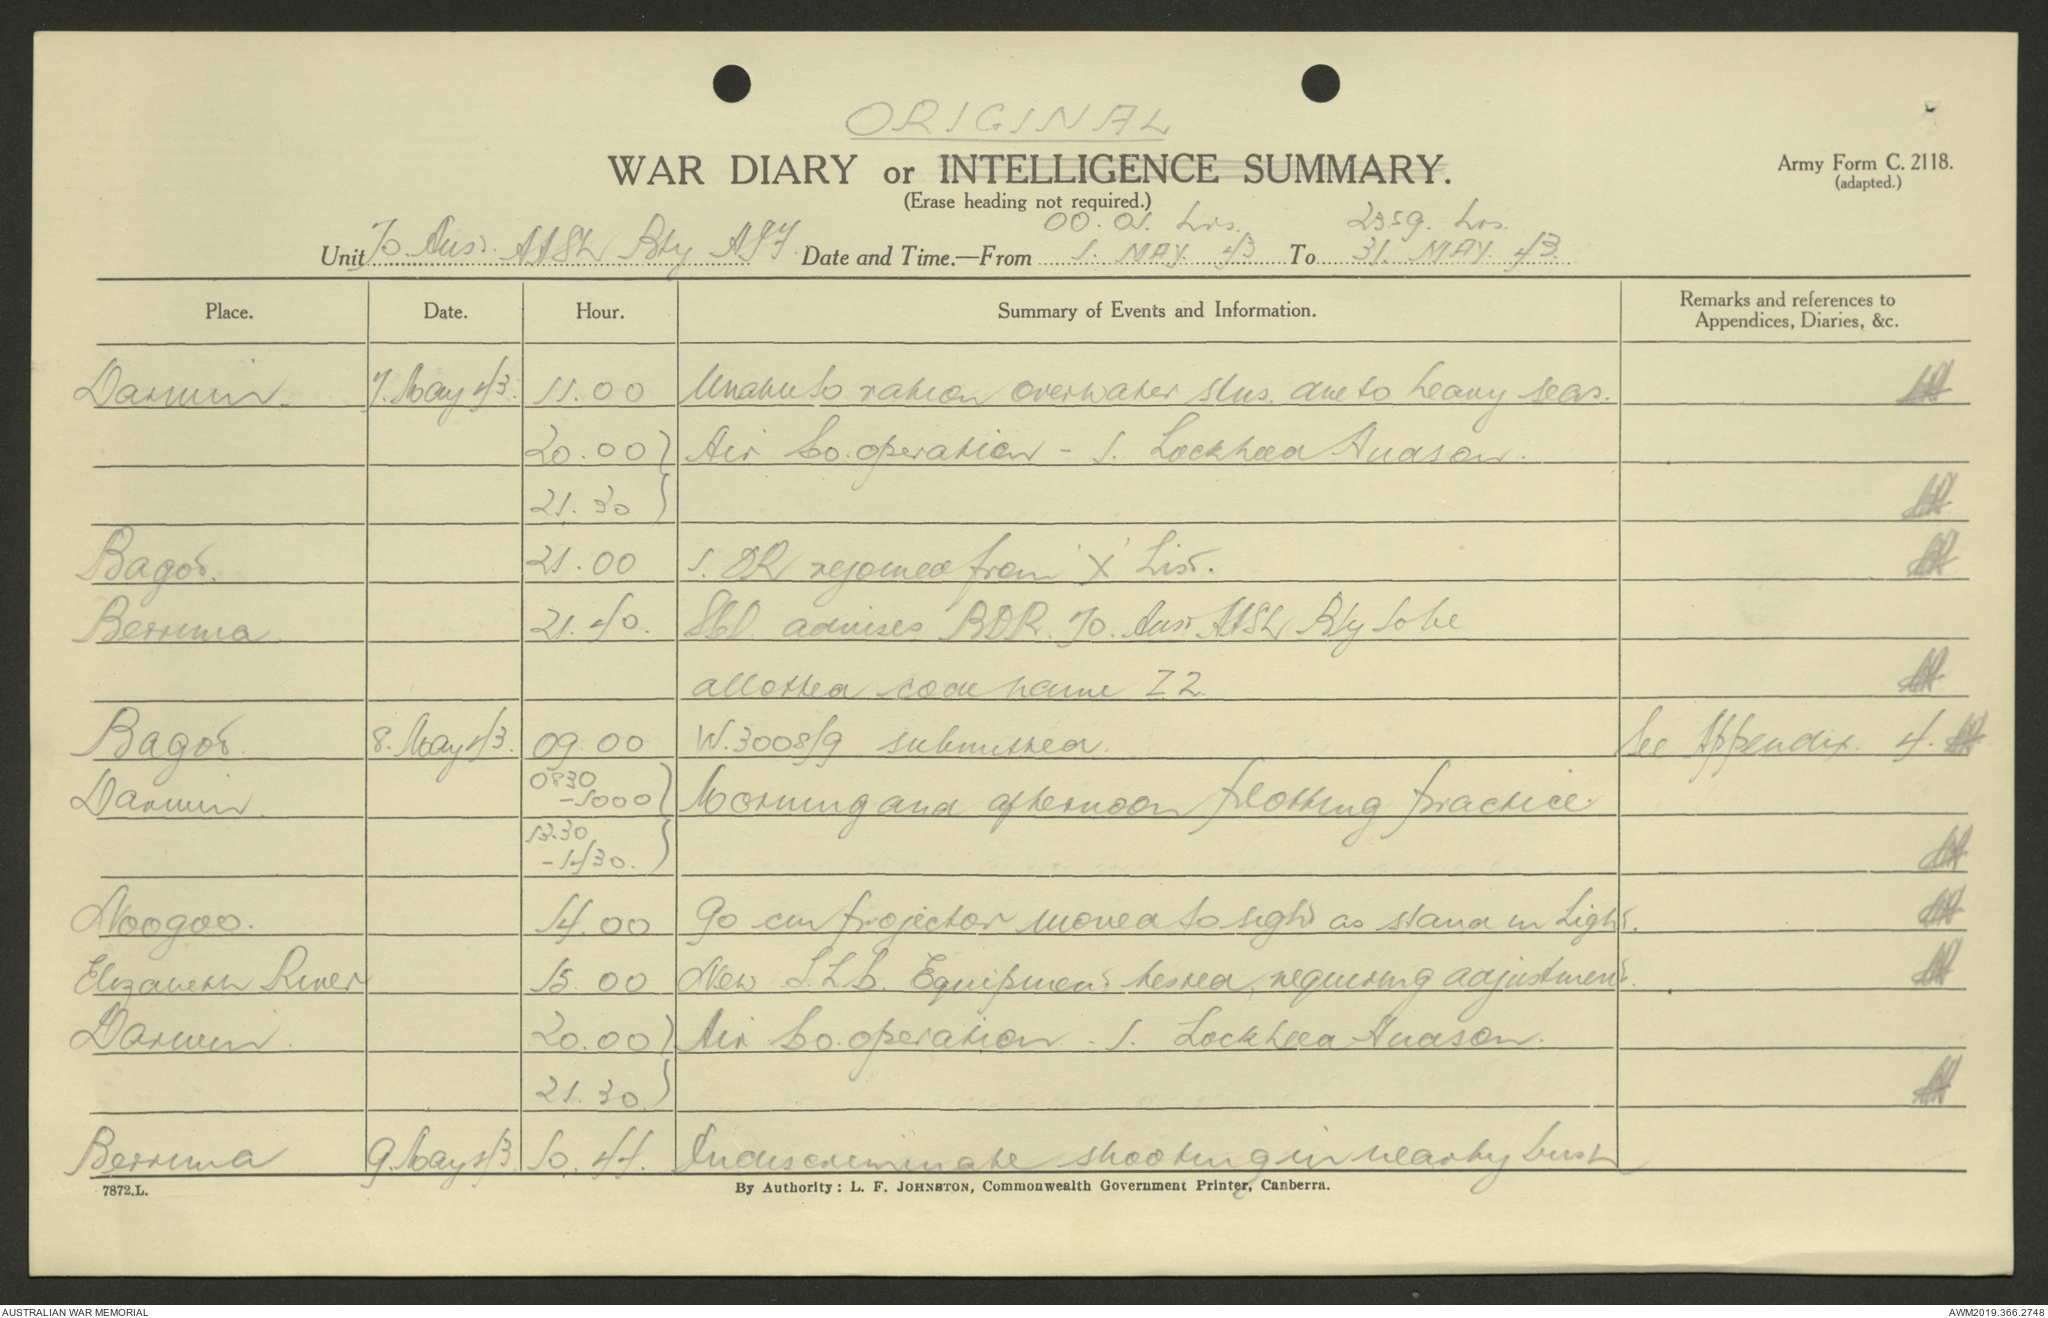 ORIGINAL
WAR DIARY or INTELLIGENCE SUMMARY.
Army Form C. 2118.
(adapted.)
(Erase heading not required.)
00.01. hrs. 2359. hrs.
Unit 70 Aust. AASL Bty AIF Date and Time.—From 1. MAY. 43 To 31. MAY. 43.
Place. Date. Hour. Summary of Events and Information. Remarks and references to Appendices, Diaries, &c.
Darwin. 7. May 43. 11.00 Unable to ration overwater stns. due to heavy seas.
20.00) Air Co.operation - 1. Lockheed Hudson.
21.30)
Bagot. 21.00 1. DR rejoined from 'X' List.
Berrima 21.40. advises RDR. 70. Aust AASL Bty to be
allotted code name Z2
Bagot. 8. May 43. 09.00 W.3008/9 submitted. See Appendix. 4.
Darwin. 0830 -1000) Morning and afternoon plotting practice
13.30 -1430.)
Noogoo. 14.00 90 cm projector moved to sight as stand in Light.
Elizabeth River 15.00 New S.L.C. Equipment tested, requiring adjustment.
Darwin. 20.00) Air Co.operation - 1. Lockheed Hudson.
21.30)
Berrima 9. May 43. 10.44. Indiscriminate shooting in nearby bush
7872.L.
By Authority: L. F. JOHNSTON, Commonwealth Government Printer, Canberra.
AUSTRALIAN WAR MEMORIAL
AWM2019.366.2748